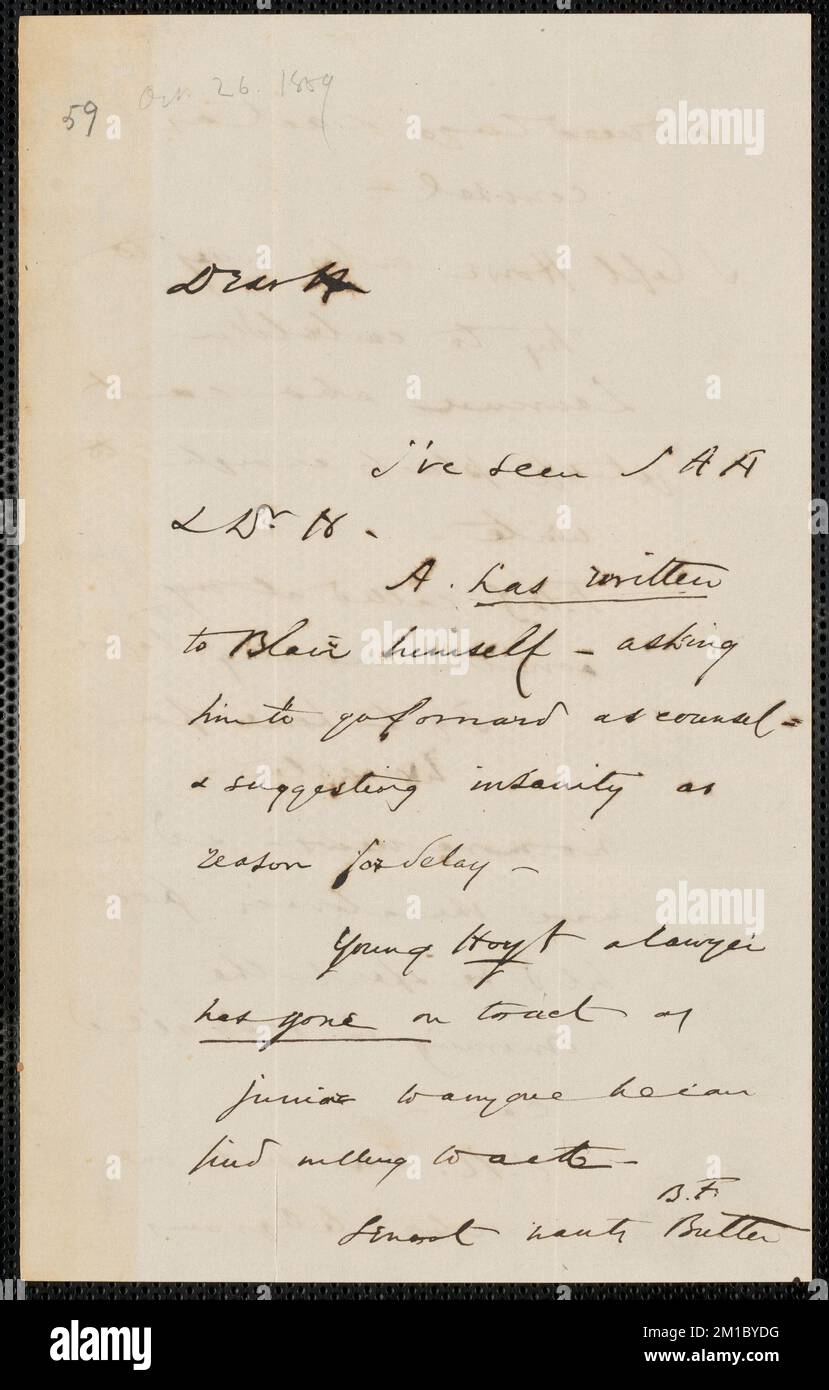 Oct. 26. 1859
59
Dear H
I've seen J A A
& Dr H.
A. has written
to Blair himself - asking
him to go forward as counsel =
& suggesting insanity as
reason for delay -
Young Hoyt a lawyer
has gone on to act as
junior to anyone he can
find willing to act -
B. F.
wants Butler
alamy
Image ID: 2M1BYDG
www.alamy.com